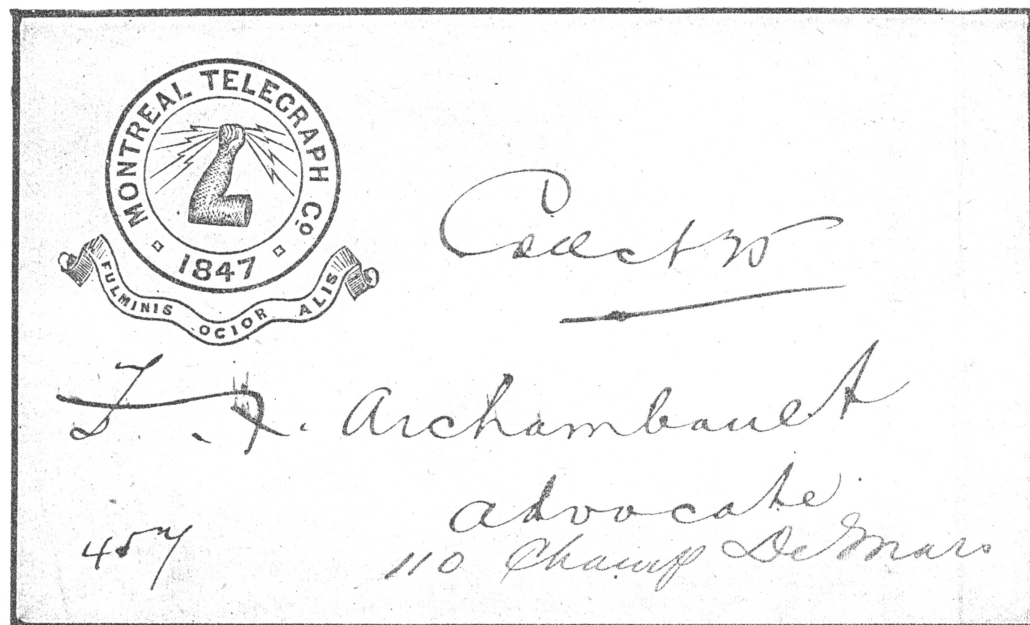 MONTREAL TELEGRAPH Co.
1847
FULMINIS OCIOR ALIS
Collect 70
Archambault
advocate
457
110 Champ De Mars